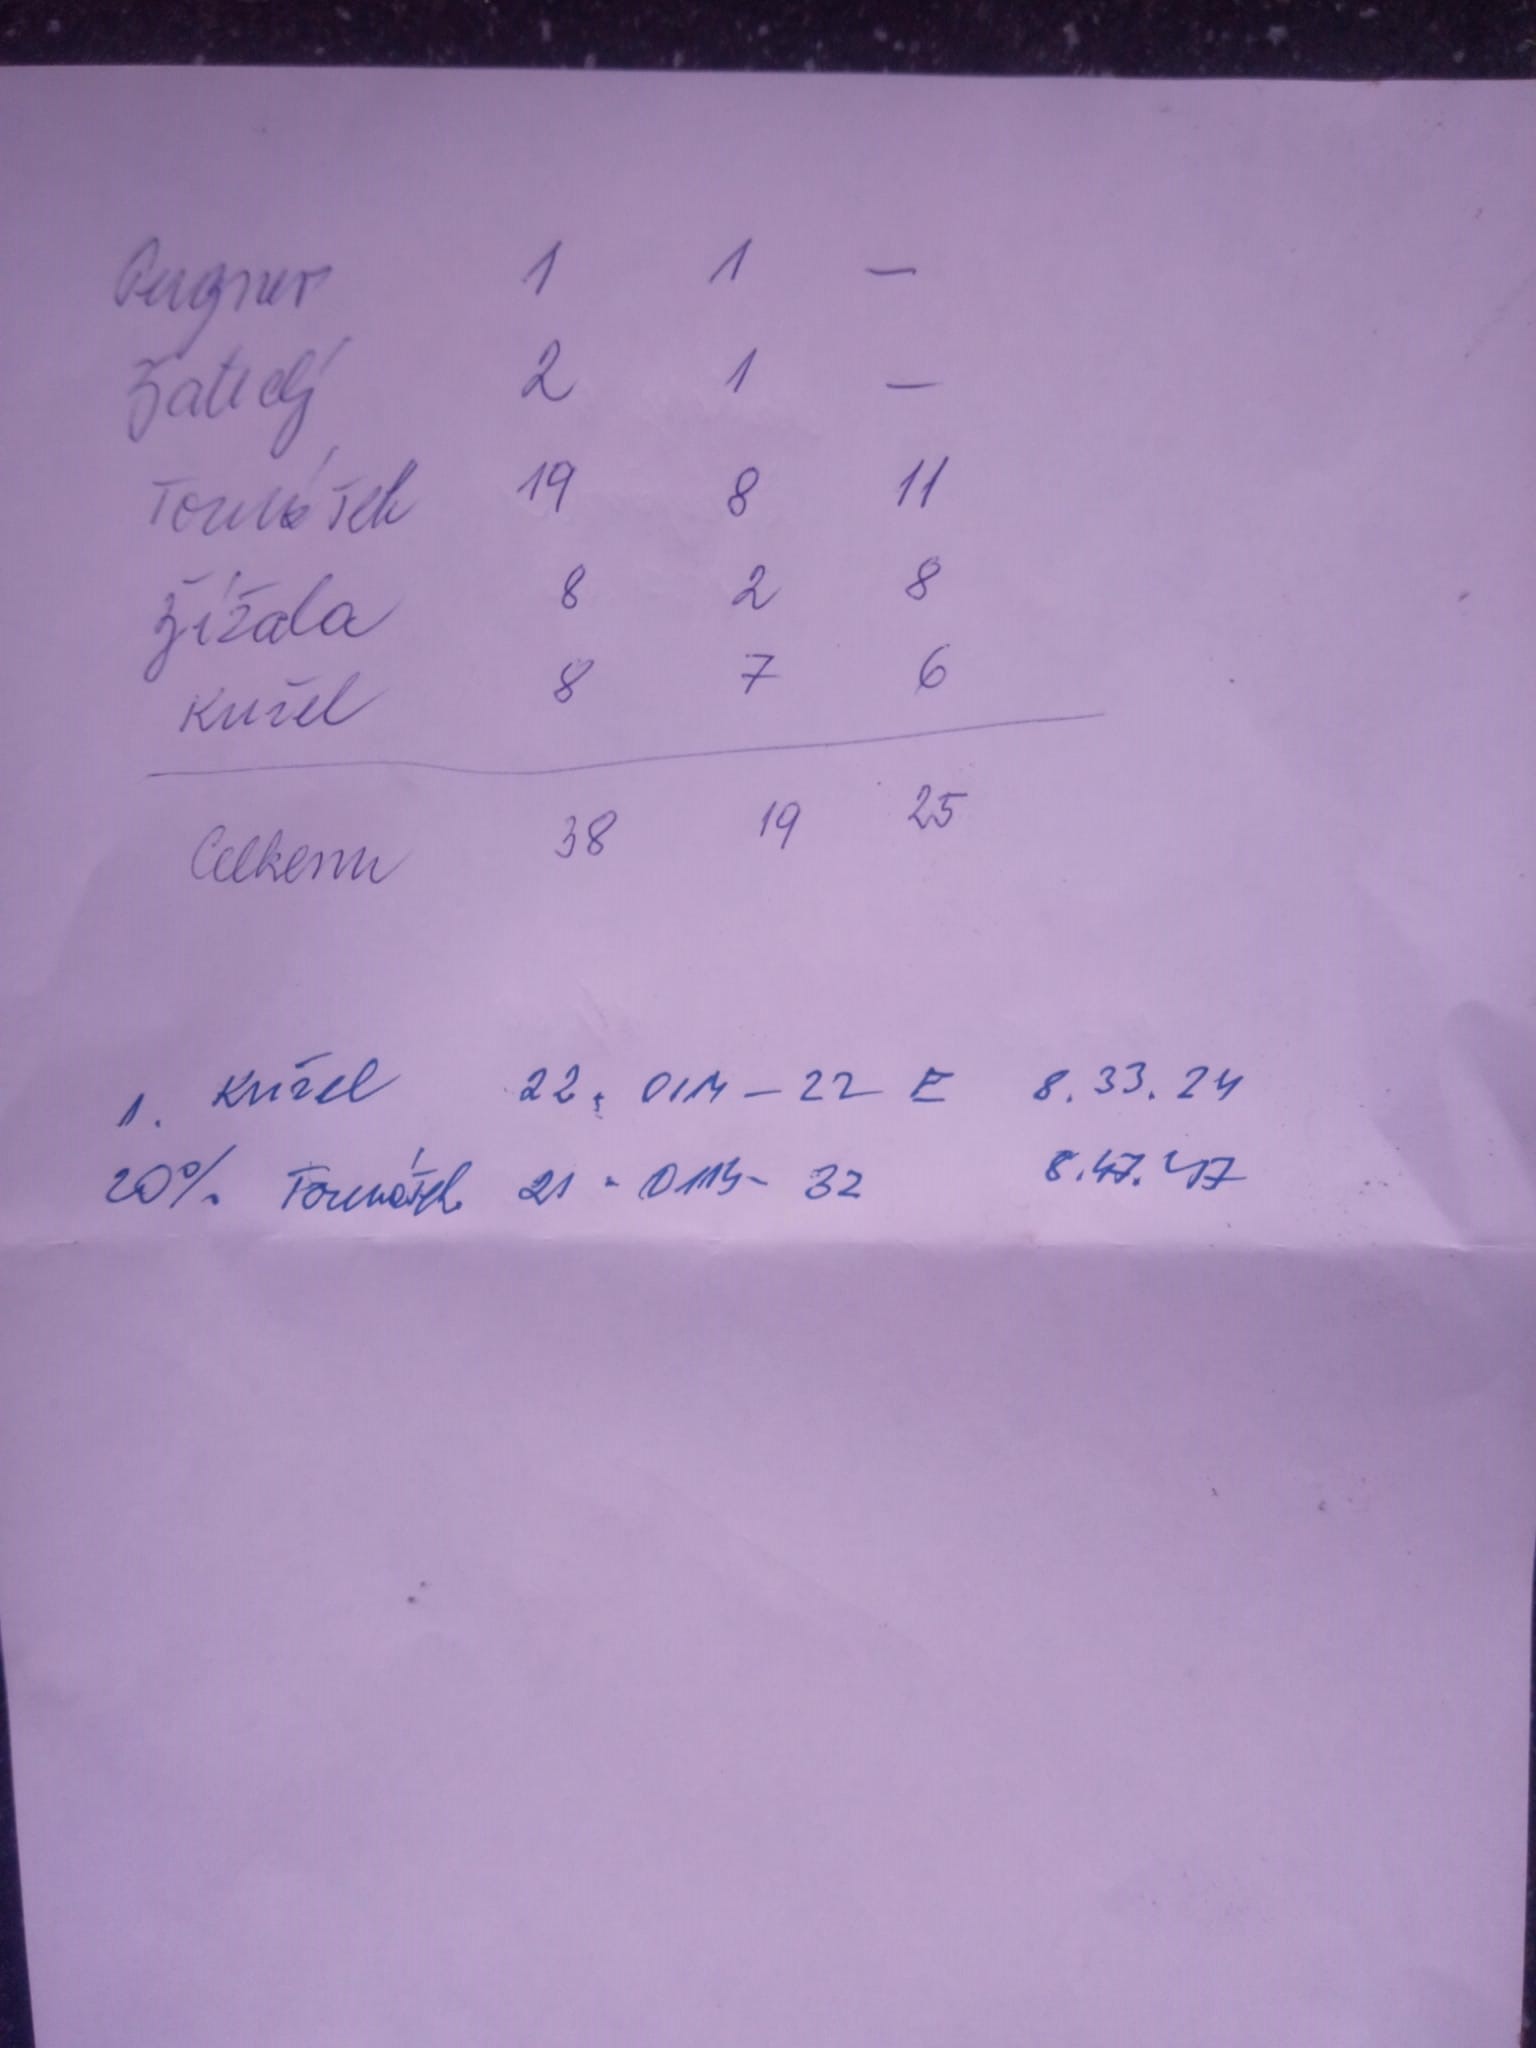 Pugner 1 1 —
Zatecký 2 1 —
Tomášek 19 8 11
Žížala 8 2 8
Kužel 8 7 6
Celkem 38 19 25
1. Kužel 22. 0114 – 22 E 8.33.24
20% Tomášek 21 - 0114 - 32 8.47.47